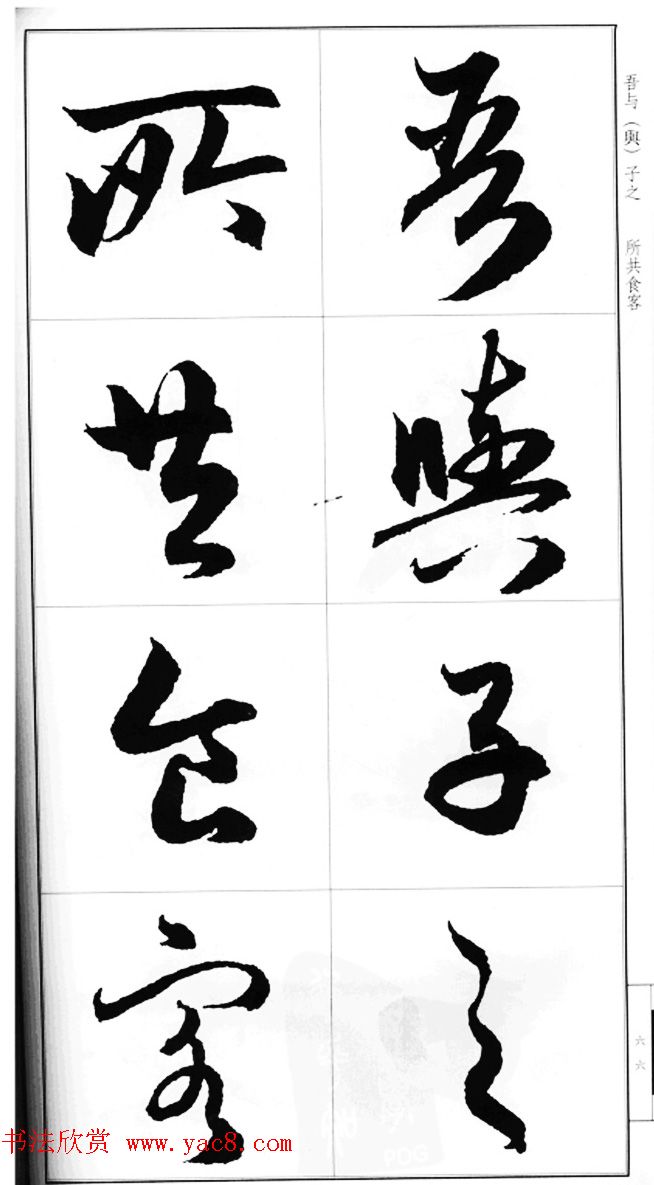 吾與子之
所共食客
吾与（與）子之　所共食客
六六
书法欣赏 www.yac8.com
PDG